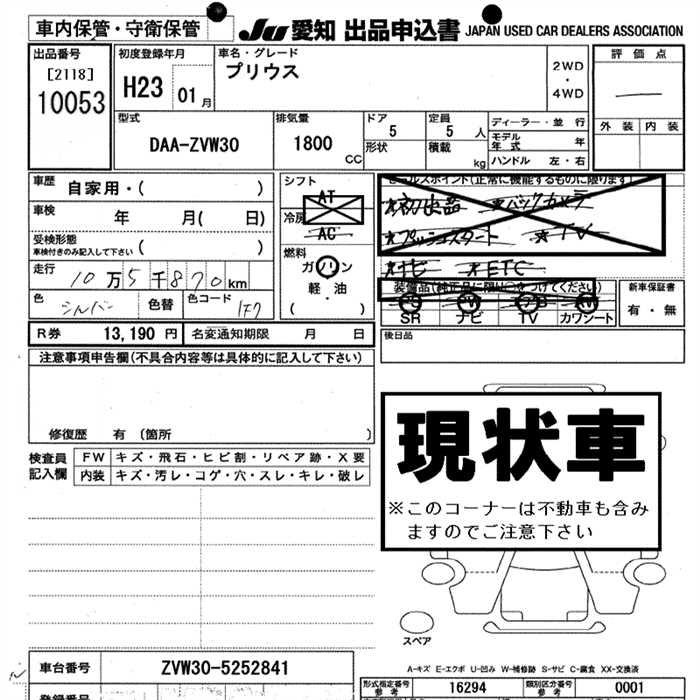 車内保管・守衛保管
JU 愛知 出品申込書 JAPAN USED CAR DEALERS ASSOCIATION
出品番号
[2118]
10053
初度登録年月
H23 01 月
車名・グレード
プリウス
2WD
・
4WD
評価点
外装 内装
型式
DAA-ZVW30
排気量
1800 CC
ドア
5
形状
定員
5 人
積載 kg
ディーラー・並 行
モデル年式 年
ハンドル 左・右
車歴 自家用・( )
車検 年 月( 日)
受検形態
車検付きのみ記入して下さい ( )
走行 10万5千870km
色 シルバー 色替 色コード 1F7
R券 13,190 円 名変通知期限 月 日
シフト
AT
冷房
AC
燃料
ガソリン
軽・油
( )
セールスポイント(正常に機能するものに限ります)
★初出品 ★バックカメラ
★プッシュスタート ★TV
★ナビ ★ETC
装備品(純正品に限り○をつけてください)
SR ナビ TV カワシート
新車保証書
有・無
後日品
注意事項申告欄(不具合内容等は具体的に記入して下さい)
修復歴 有 (箇所 )
検査員
記入欄
FW キズ・飛石・ヒビ割・リペア跡・X要
内装 キズ・汚レ・コゲ・穴・スレ・キレ・破レ
現状車
※このコーナーは不動車も含み
ますのでご注意下さい
スペア
A-キズ E-エクボ U-凹み W-補修跡 S-サビ C-腐食 XX-交換済
車台番号 ZVW30-5252841
形式指定番号
参考
16294
類別区分番号
参考
0001
登録番号